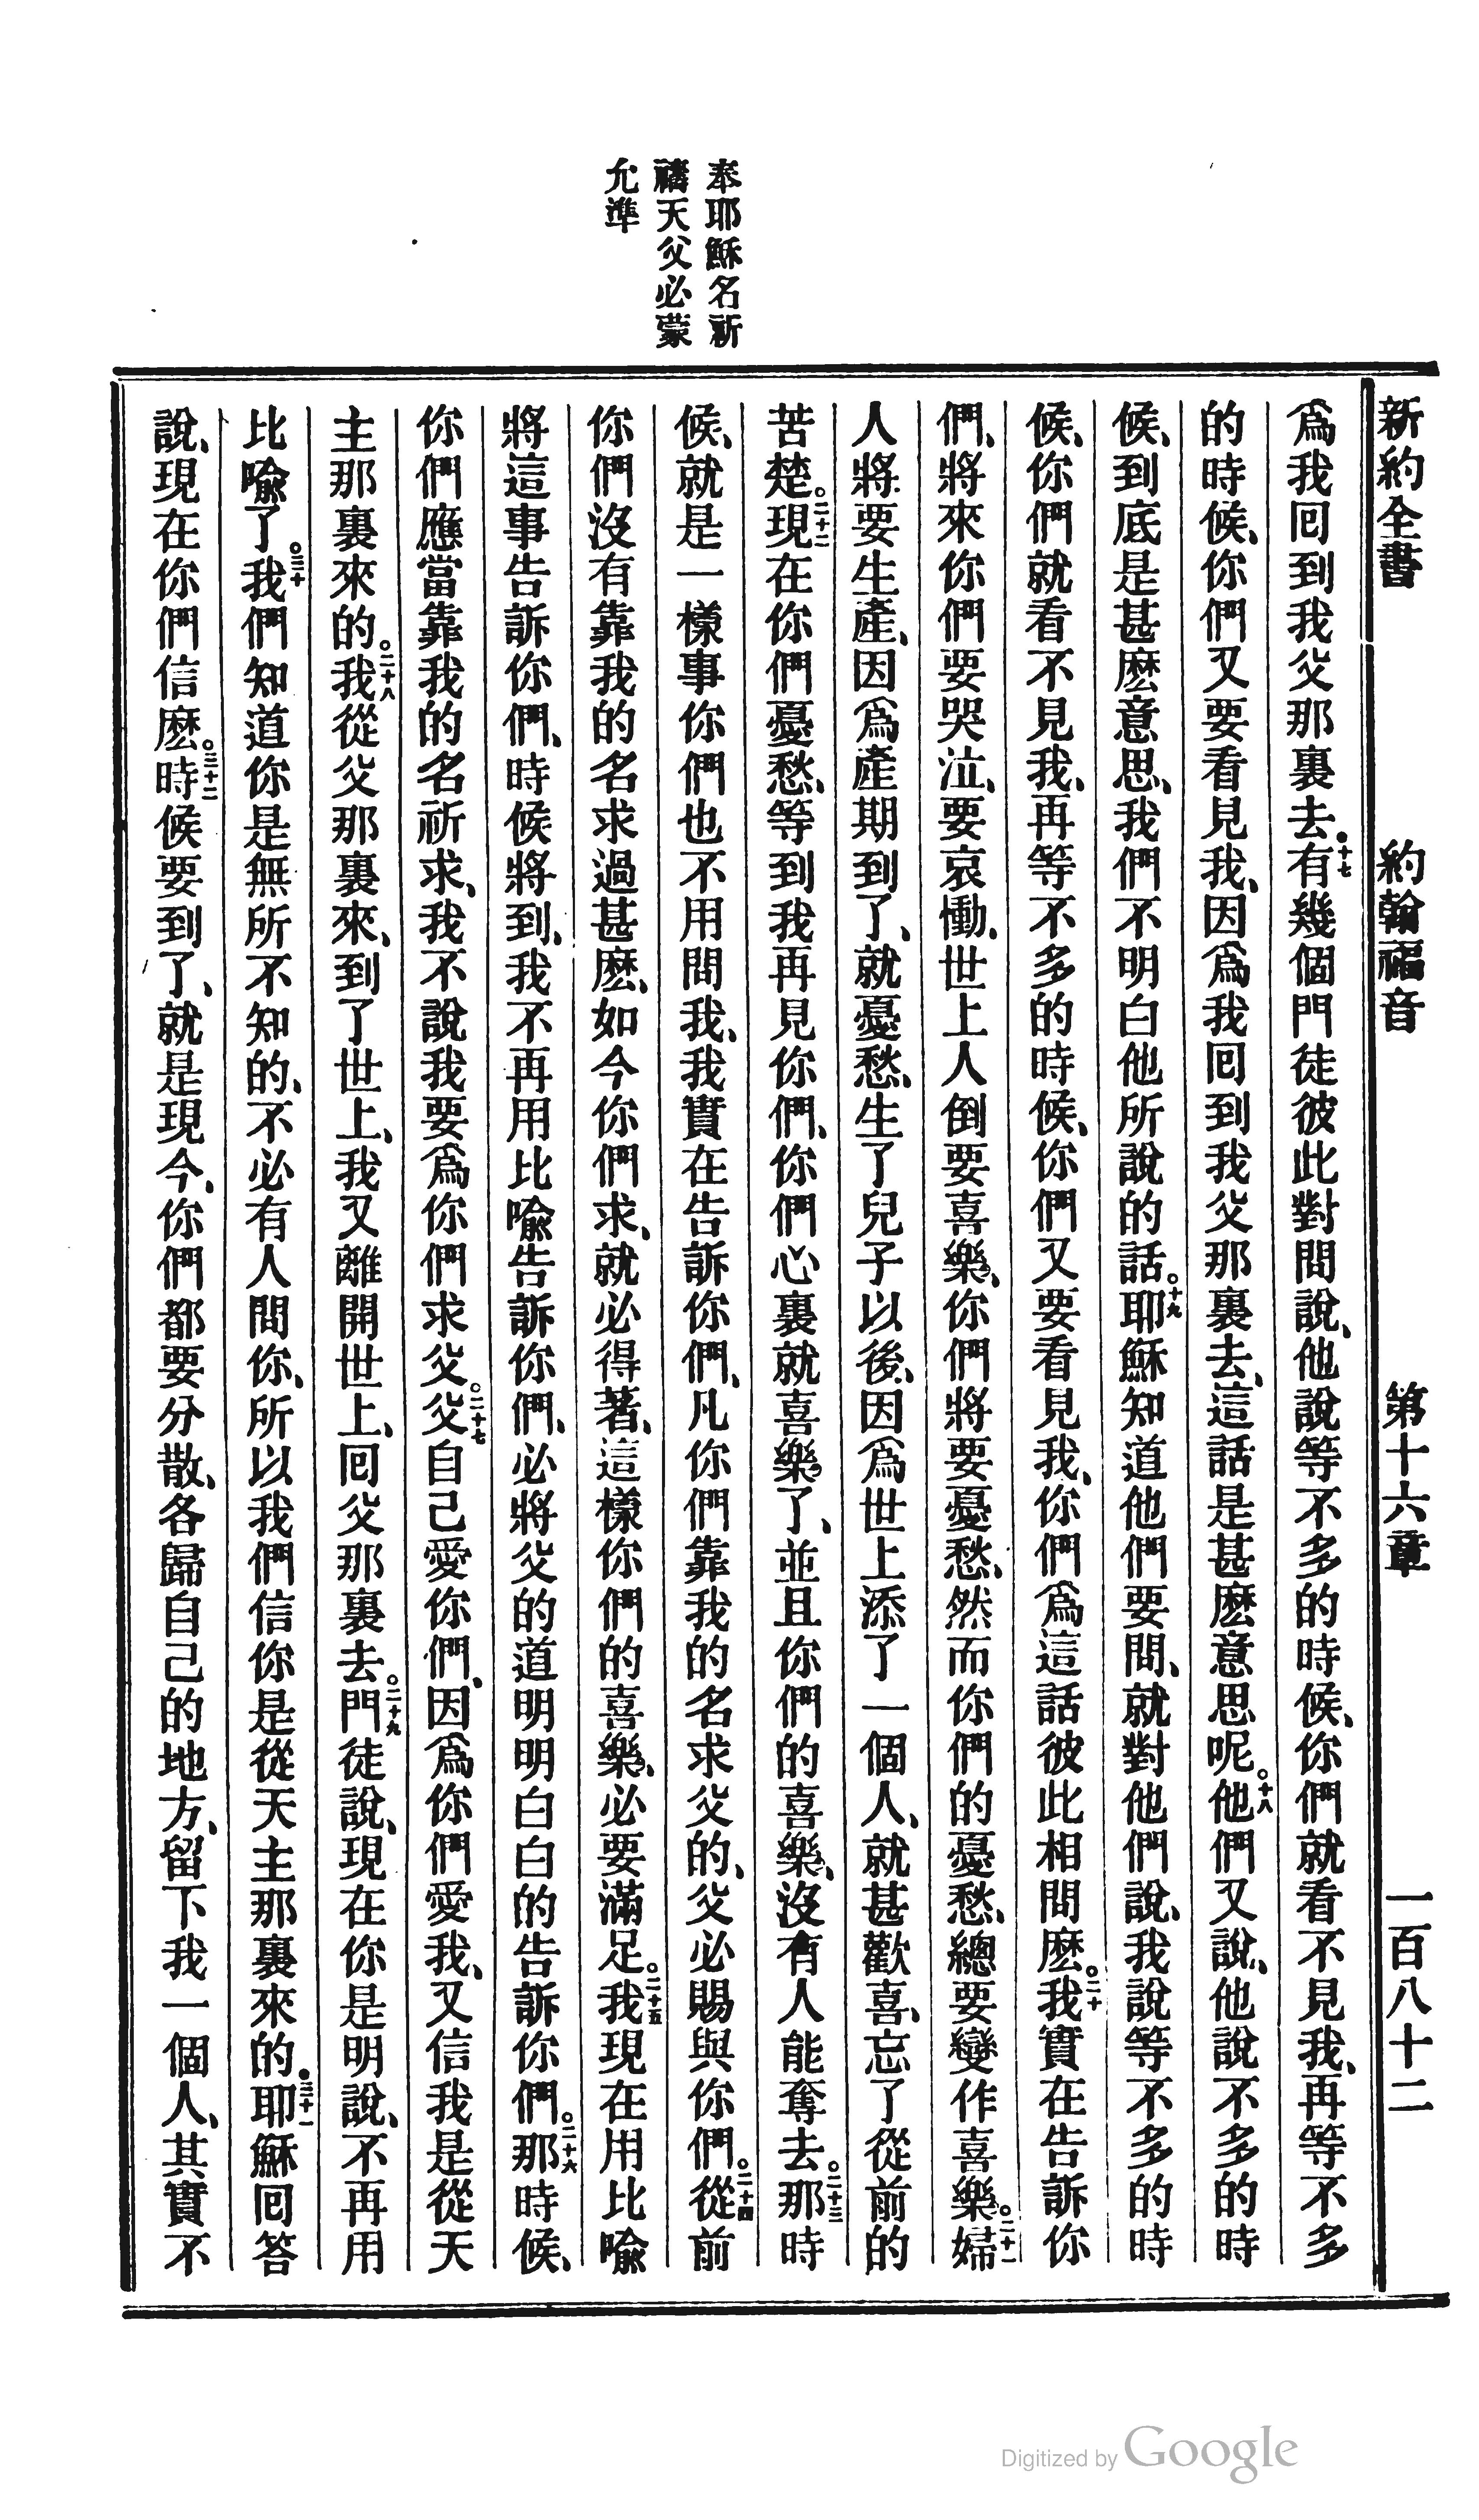 新約全書 約翰福音 第十六章 一百八十二
爲我回到我父那裏去●十七有幾個門徒彼此對問說、他說等不多的時候、你們就看不見我、再等不多
的時候、你們又要看見我、因爲我回到我父那裏去、這話是甚麽意思呢○十八他們又說、他說不多的時
候、到底是甚麽意思、我們不明白他所說的話○十九耶穌知道他們要問、就對他們說、我說等不多的時
候、你們就看不見我、再等不多的時候、你們又要看見我、你們爲這話彼此相問麽○二十我實在告訴你
們、將來你們要哭泣、要哀慟、世上人倒要喜樂、你們將要憂愁、然而你們的憂愁、總要變作喜樂○二十一婦
人將要生產、因爲產期到了、就憂愁、生了兒子以後、因爲世上添了一個人、就甚歡喜、忘了從前的
苦楚○二十二現在你們憂愁、等到我再見你們、你們心裏就喜樂了、並且你們的喜樂、沒有人能奪去○二十三那時
候、就是一樣事你們也不用問我、我實在告訴你們、凡你們靠我的名求父的、父必賜與你們○二十四從前
你們沒有靠我的名求過甚麽、如今你們求、就必得著、這樣你們的喜樂、必要滿足○二十五我現在用比喩
將這事告訴你們、時候將到、我不再用比喩告訴你們、必將父的道明明白白的告訴你們○二十六那時候、
你們應當靠我的名祈求、我不說我要爲你們求父○二十七父自己愛你們、因爲你們愛我、又信我是從天
主那裏來的○二十八我從父那裏來、到了世上、我又離開世上、回父那裏去○二十九門徒說、現在你是明說、不再用
比喩了○三十我們知道你是無所不知的、不必有人問你、所以我們信你是從天主那裏來的●三十一耶穌回答
說、現在你們信麽○三十二時候要到了、就是現今、你們都要分散、各歸自己的地方、留下我一個人、其實不
奉耶穌名祈
禱天父必蒙
允準
Digitized by Google